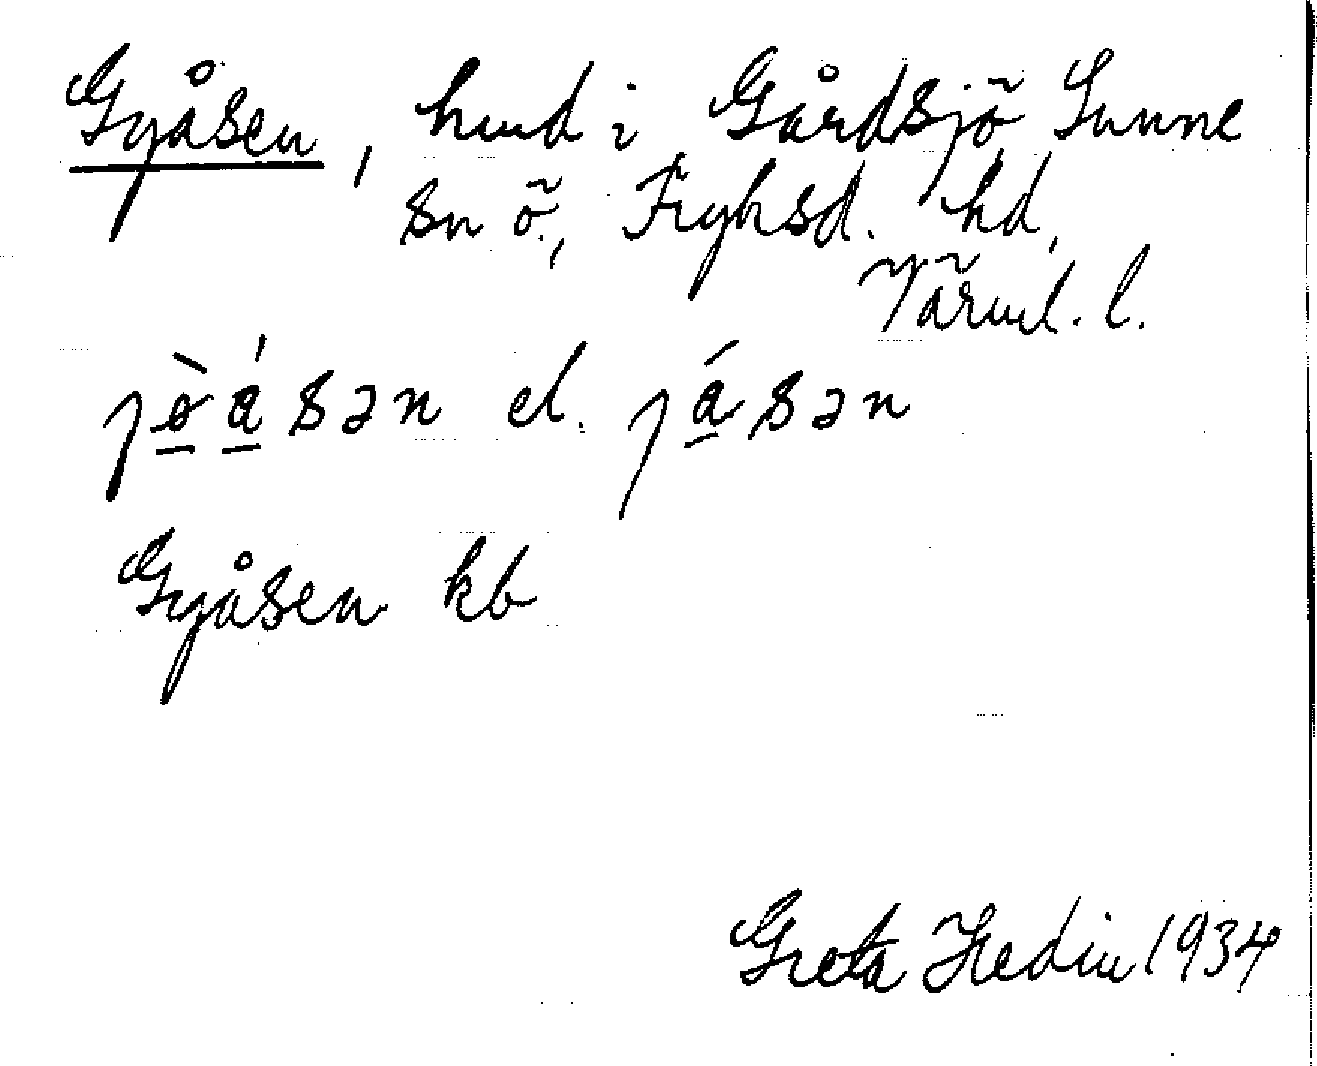 Gyåsen, hmd i Gårdsjö Sunne
sn ö., Fryksd. hd,
Värml. l.
el.
Gyåsen kb
Greta Hedin 1934